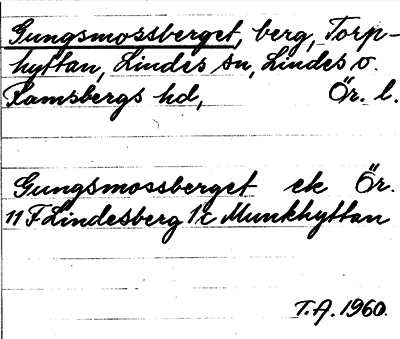 Gungsmossberget, berg, Torp-
hyttan, Lindes sn, Lindes o.
Ramsbergs hd, Ör. l.
Gungsmossberget ek Ör.
11 F Lindesberg 1c Munkhyttan
T.A. 1960.